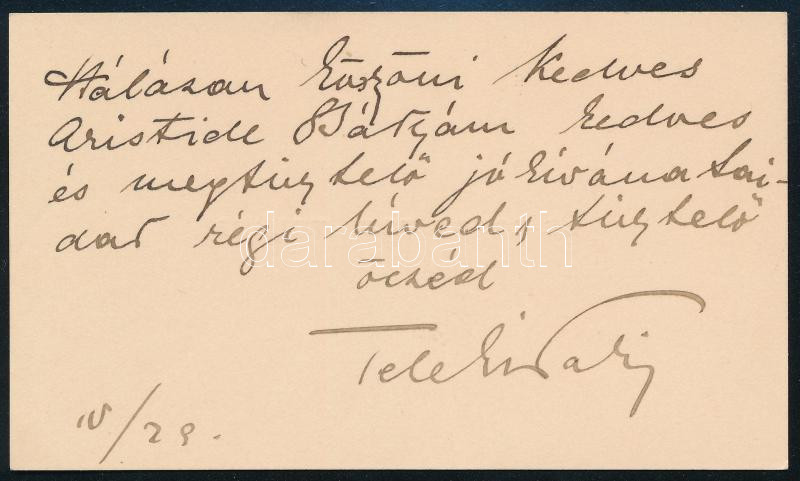 Hálásan köszöni kedves
Aristide Bátyám kedves
és megtisztelő jókívánatai-
dat régi híved, tisztelő
öcséd
Teleki Pali
IV/29.
darabanth